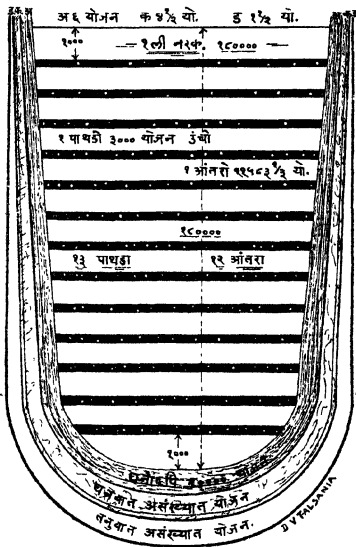 ड क अ
अ ६ योजन क ४१/२ यो. ड १ १/२ यो.
१०००
१ली नरक. १८००००
१ पाथडो ३००० योजन उंचो
१ आंतरो ११५८३ १/३ यो.
१८००००
१३ पाथडा १२ आंतरा
१०००
घनोदधि २०००० योजन
घनवात असंख्यात योजन
तनुवात असंख्यात योजन.
D V TALSANIA